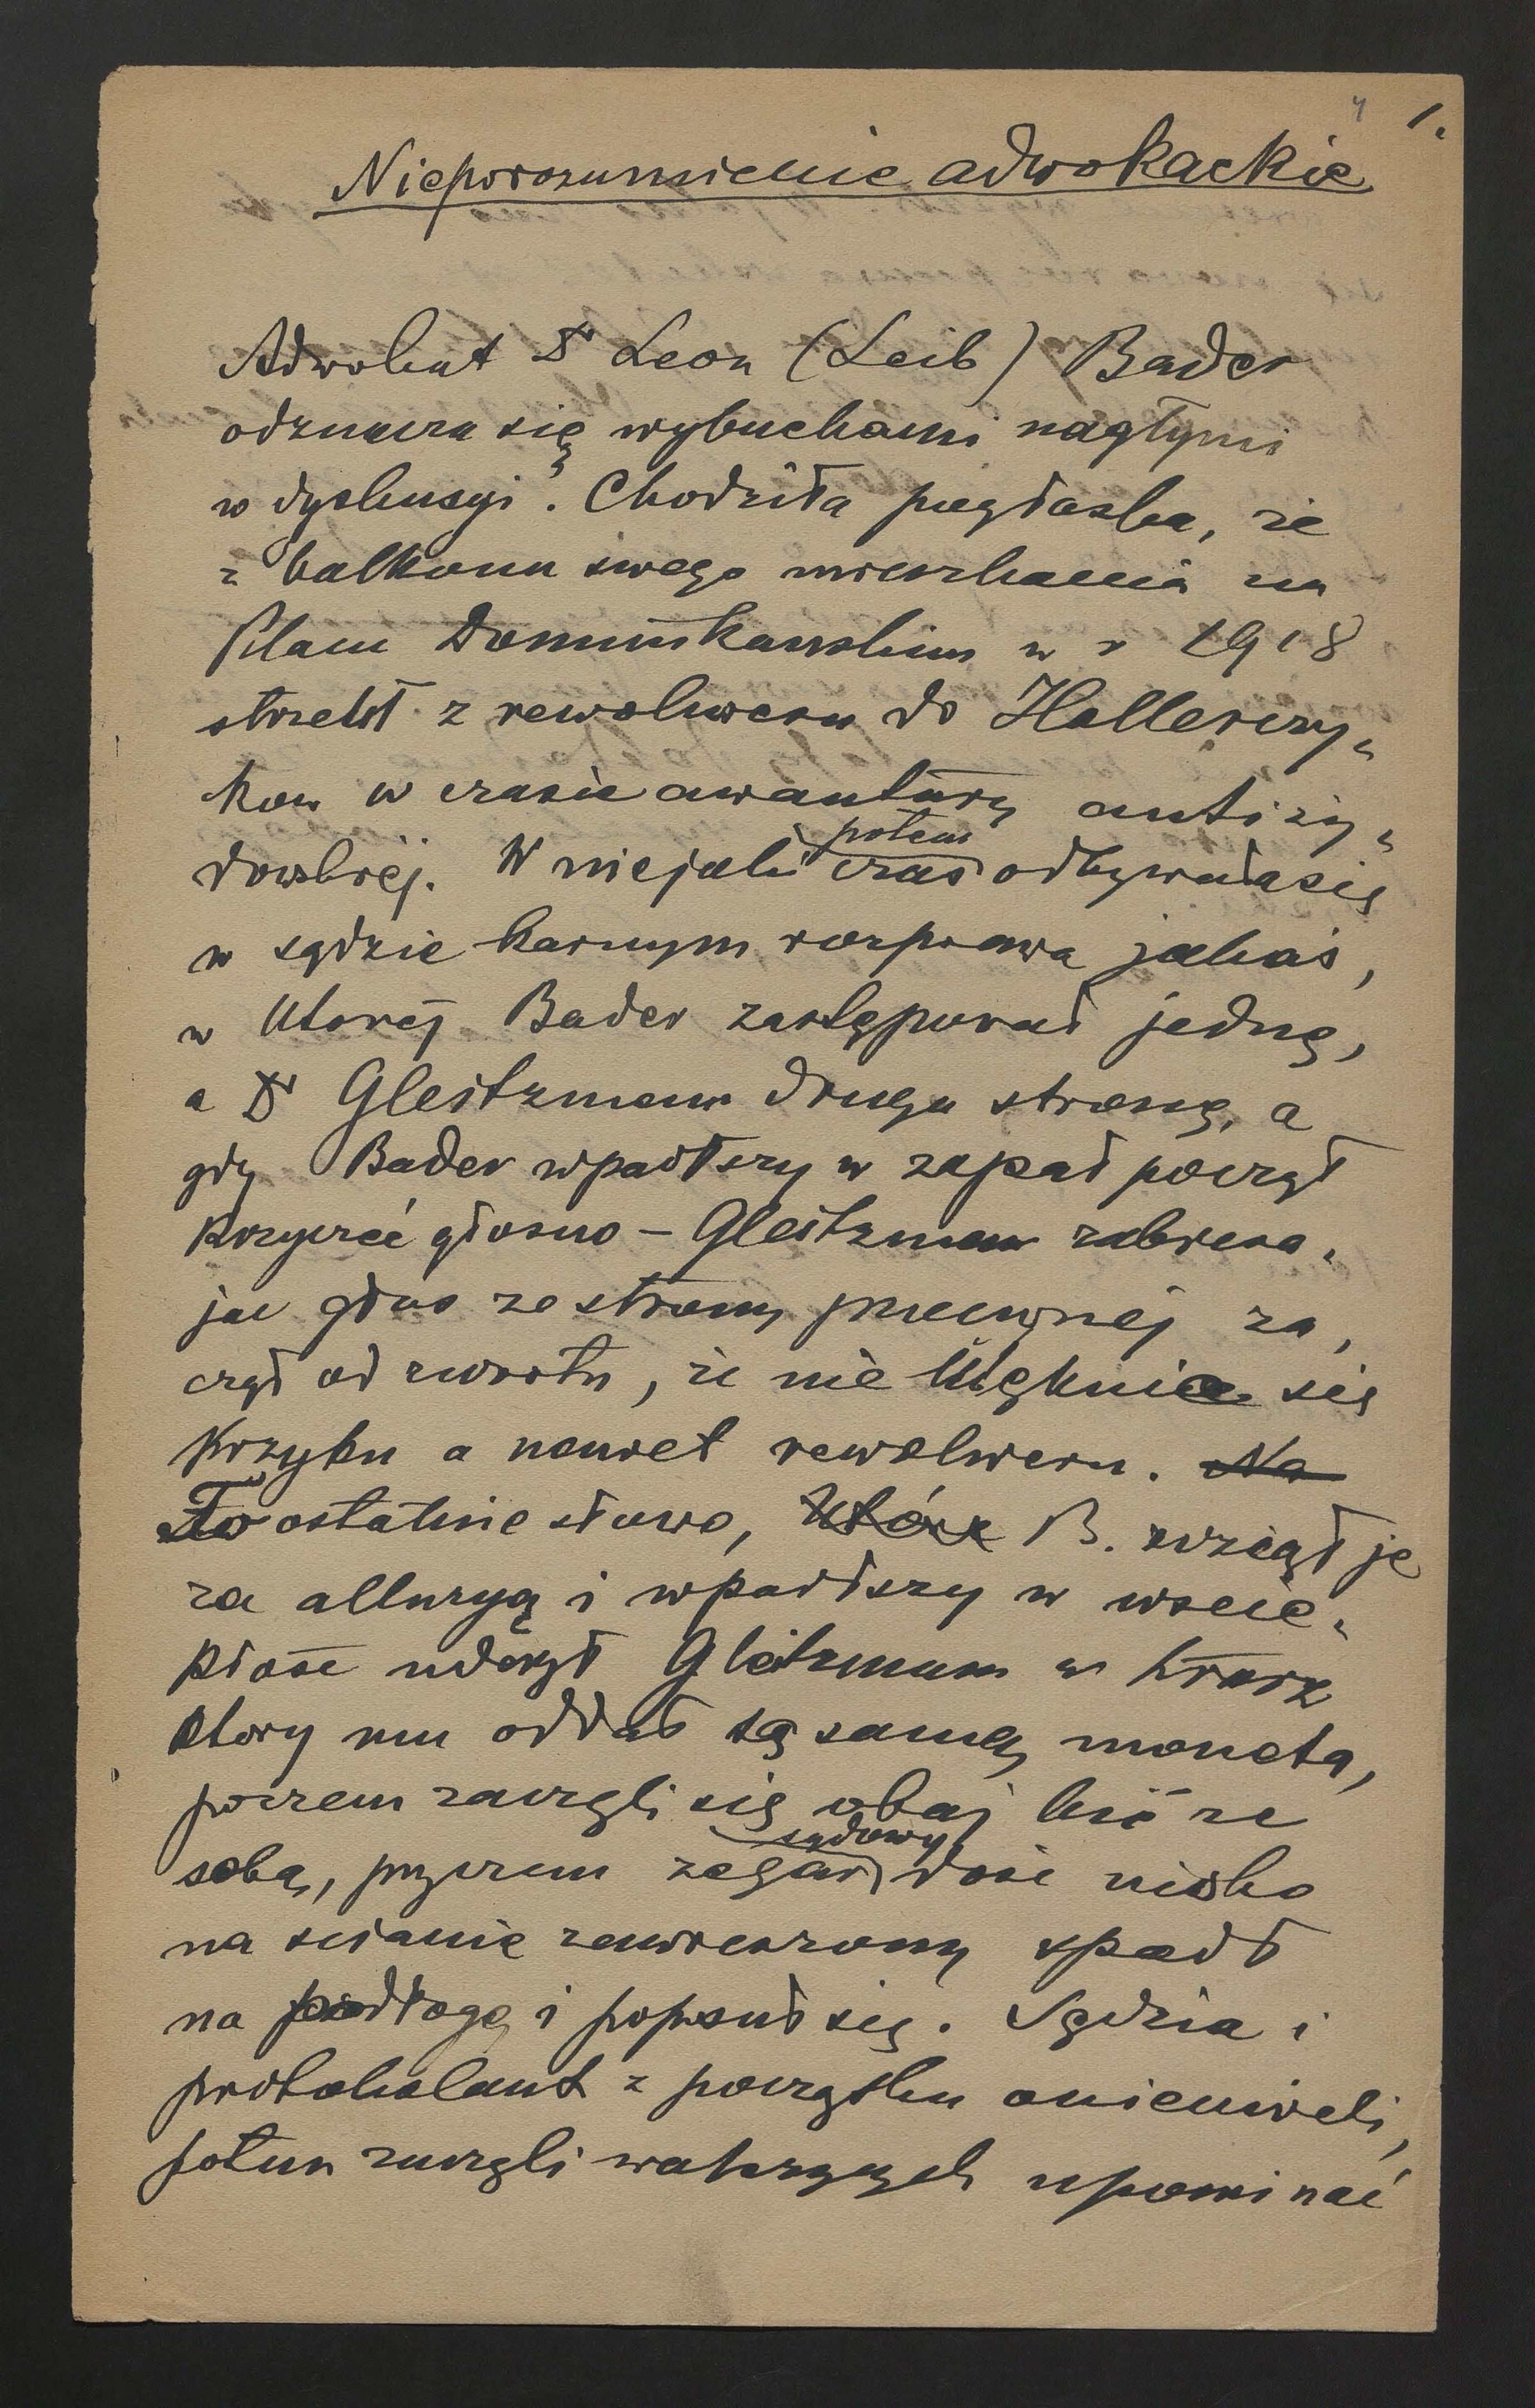 4 1.
Nieporozumienie adwokackie
Adwokat Dr Leon (Leib) Bader
odznacza się wybuchami nagłymi
w dyskusyi. Chodziła pogłoska, że
z balkonu swego mieszkania na
Placu Dominikańskim w r 1918
strzelił z rewolweru do Hallerczy„
ków w czasie awantury antiży„
dowskiej. W niejaki potem czas odbywała się
w sądzie karnym rozprawa jakaś,
w której Bader zastępował jedną,
a Dr Gleitzman drugą stronę, a
gdy Bader wpadłszy w zapał począł
krzyczeć głosno – Gleitzman zabiera„
jąc głos ze strony przeciwnej za„
czął od zwrotu, że nie ulęknie się
krzyku a nawet rewolweru. Na
To ostatnie słowo, które B. wziął je
za alluzyą i wpadłszy w wście„
kłość uderzył Gleitzmana w twarz
który mu oddał tą samą monetą,
poczem zaczęli się obaj bić ze
sobą, przyczem zegar sądowy dość nisko
na scianie zawieszony spadł
na podłogę i popsuł się. Sędzia i
protokolant z początku onieмieli,
potem zaczęli walczących upominać